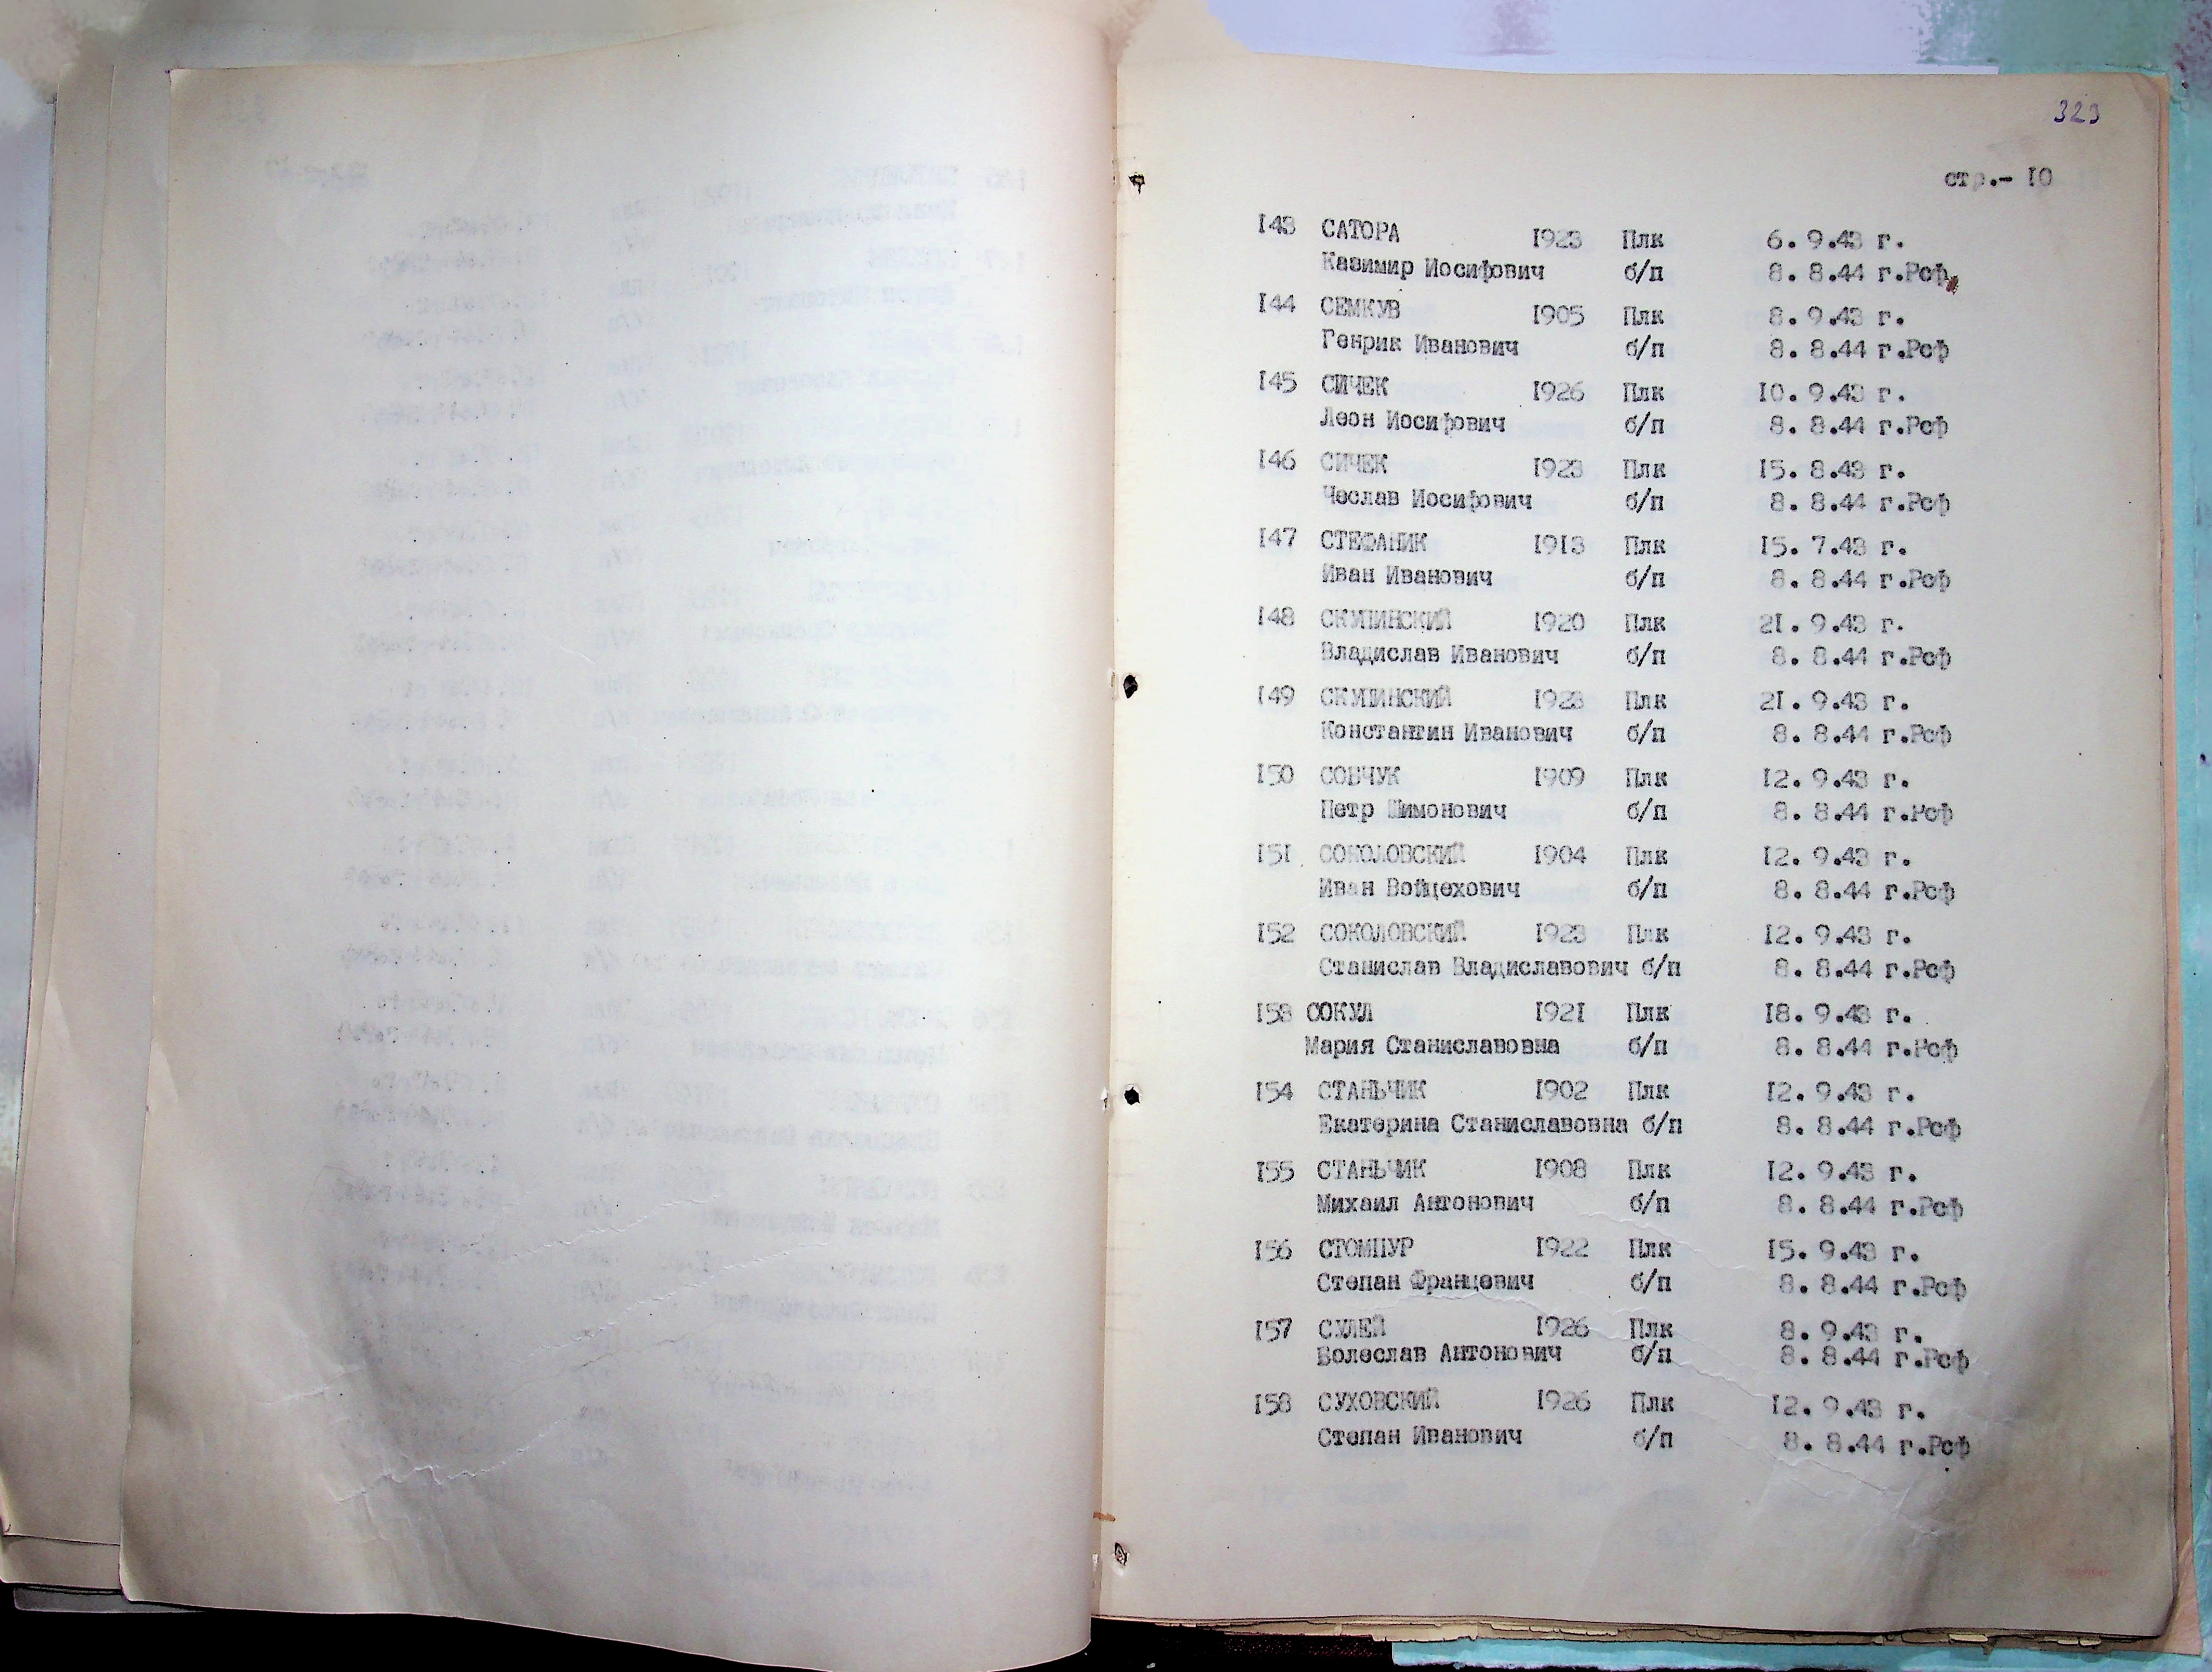 323
стр.- 10
143 САТОРА 1923 Плк 6. 9.43 г.
Казимир Иосифович б/п 8. 8.44 г.Рсф
144 СЕМКУВ 1905 Плк 8. 9.43 г.
Генрик Иванович б/п 8. 8.44 г.Рсф
145 СИЧЕК 1926 Плк 10. 9.43 г.
Леон Иосифович б/п 8. 8.44 г.Рсф
146 СИЧЕК 1923 Плк 15. 8.43 г.
Чеслав Иосифович б/п 8. 8.44 г.Рсф
147 СТЕФАНИК 1913 Плк 15. 7.43 г.
Иван Иванович б/п 8. 8.44 г.Рсф
148 СКУПИНСКИЙ 1920 Плк 21. 9.43 г.
Владислав Иванович б/п 8. 8.44 г.Рсф
149 СКУПИНСКИЙ 1923 Плк 21. 9.43 г.
Константин Иванович б/п 8. 8.44 г.Рсф
150 СОВЧУК 1909 Плк 12. 9.43 г.
Петр Шимонович б/п 8. 8.44 г.Рсф
151 СОКОЛОВСКИЙ 1904 Плк 12. 9.43 г.
Иван Войцехович б/п 8. 8.44 г.Рсф
152 СОКОЛОВСКИЙ 1923 Плк 12. 9.43 г.
Станислав Владиславович б/п 8. 8.44 г.Рсф
153 СОКУЛ 1921 Плк 18. 9.43 г.
Мария Станиславовна б/п 8. 8.44 г.Рсф
154 СТАНЬЧИК 1902 Плк 12. 9.43 г.
Екатерина Станиславовна б/п 8. 8.44 г.Рсф
155 СТАНЬЧИК 1908 Плк 12. 9.43 г.
Михаил Антонович б/п 8. 8.44 г.Рсф
156 СТОМПУР 1922 Плк 15. 9.43 г.
Степан Францевич б/п 8. 8.44 г.Рсф
157 СУЛЕЙ 1926 Плк 8. 9.43 г.
Болеслав Антонович б/п 8. 8.44 г.Рсф
158 СУХОВСКИЙ 1926 Плк 12. 9.43 г.
Степан Иванович б/п 8. 8.44 г.Рсф